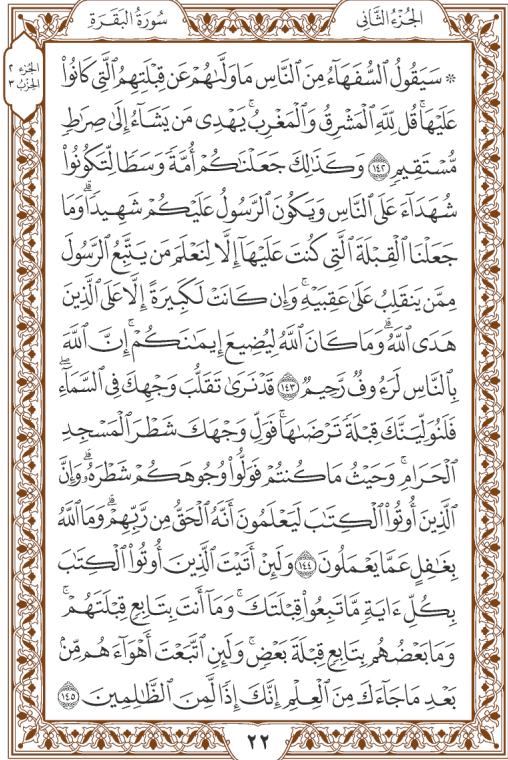 الجزء الثاني
سورة البقرة
الجزء ٢
الحزب ٣
۞ سَيَقُولُ ٱلسُّفَهَآءُ مِنَ ٱلنَّاسِ مَا وَلَّىٰهُمْ عَن قِبْلَتِهِمُ ٱلَّتِى كَانُوا۟
عَلَيْهَا ۚ قُل لِّلَّهِ ٱلْمَشْرِقُ وَٱلْمَغْرِبُ ۚ يَهْدِى مَن يَشَآءُ إِلَىٰ صِرَٰطٍ
مُّسْتَقِيمٍ ١٤٢ وَكَذَٰلِكَ جَعَلْنَٰكُمْ أُمَّةً وَسَطًا لِّتَكُونُوا۟
شُهَدَآءَ عَلَى ٱلنَّاسِ وَيَكُونَ ٱلرَّسُولُ عَلَيْكُمْ شَهِيدًا ۗ وَمَا
جَعَلْنَا ٱلْقِبْلَةَ ٱلَّتِى كُنتَ عَلَيْهَآ إِلَّا لِنَعْلَمَ مَن يَتَّبِعُ ٱلرَّسُولَ
مِمَّن يَنقَلِبُ عَلَىٰ عَقِبَيْهِ ۚ وَإِن كَانَتْ لَكَبِيرَةً إِلَّا عَلَى ٱلَّذِينَ
هَدَى ٱللَّهُ ۗ وَمَا كَانَ ٱللَّهُ لِيُضِيعَ إِيمَٰنَكُمْ ۚ إِنَّ ٱللَّهَ
بِٱلنَّاسِ لَرَءُوفٌ رَّحِيمٌ ١٤٣ قَدْ نَرَىٰ تَقَلُّبَ وَجْهِكَ فِى ٱلسَّمَآءِ ۖ
فَلَنُوَلِّيَنَّكَ قِبْلَةً تَرْضَىٰهَا ۚ فَوَلِّ وَجْهَكَ شَطْرَ ٱلْمَسْجِدِ
ٱلْحَرَامِ ۚ وَحَيْثُ مَا كُنتُمْ فَوَلُّوا۟ وُجُوهَكُمْ شَطْرَهُۥ ۗ وَإِنَّ
ٱلَّذِينَ أُوتُوا۟ ٱلْكِتَٰبَ لَيَعْلَمُونَ أَنَّهُ ٱلْحَقُّ مِن رَّبِّهِمْ ۗ وَمَا ٱللَّهُ
بِغَٰفِلٍ عَمَّا يَعْمَلُونَ ١٤٤ وَلَئِنْ أَتَيْتَ ٱلَّذِينَ أُوتُوا۟ ٱلْكِتَٰبَ
بِكُلِّ ءَايَةٍ مَّا تَبِعُوا۟ قِبْلَتَكَ ۚ وَمَآ أَنتَ بِتَابِعٍ قِبْلَتَهُمْ ۚ
وَمَا بَعْضُهُم بِتَابِعٍ قِبْلَةَ بَعْضٍ ۚ وَلَئِنِ ٱتَّبَعْتَ أَهْوَآءَهُم مِّنۢ
بَعْدِ مَا جَآءَكَ مِنَ ٱلْعِلْمِ ۙ إِنَّكَ إِذًا لَّمِنَ ٱلظَّٰلِمِينَ ١٤٥
٢٢